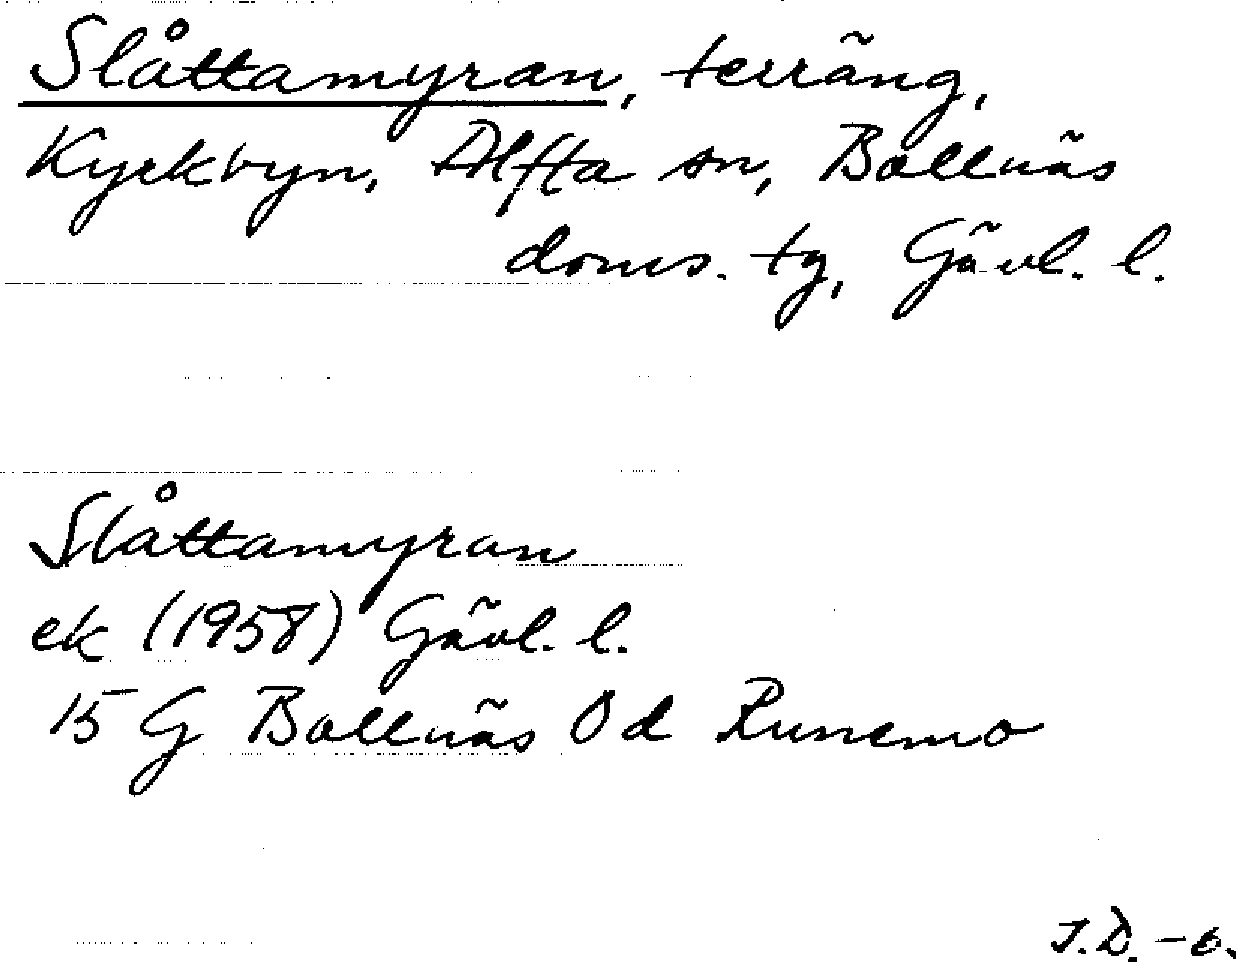 Slåttamyran, terräng,
Kyrkbyn, Alfta sn, Bollnäs
doms. tg, Gävl. l.
Slåttamyran
ek (1958) Gävl. l.
15 G Bollnäs Od Runemo